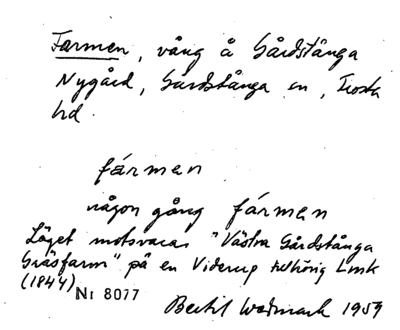 Farmen, vång å Gårdstånga
Nygård, Gårdstånga sn, Frosta
hd.
fármen
någon gång fármen
Läget motsvarar "Västra Gårdstånga
Gräsfarm" på en Viderup tillhörig Lmk
(1844) Nr 8077
Bertil Wedmark 1959